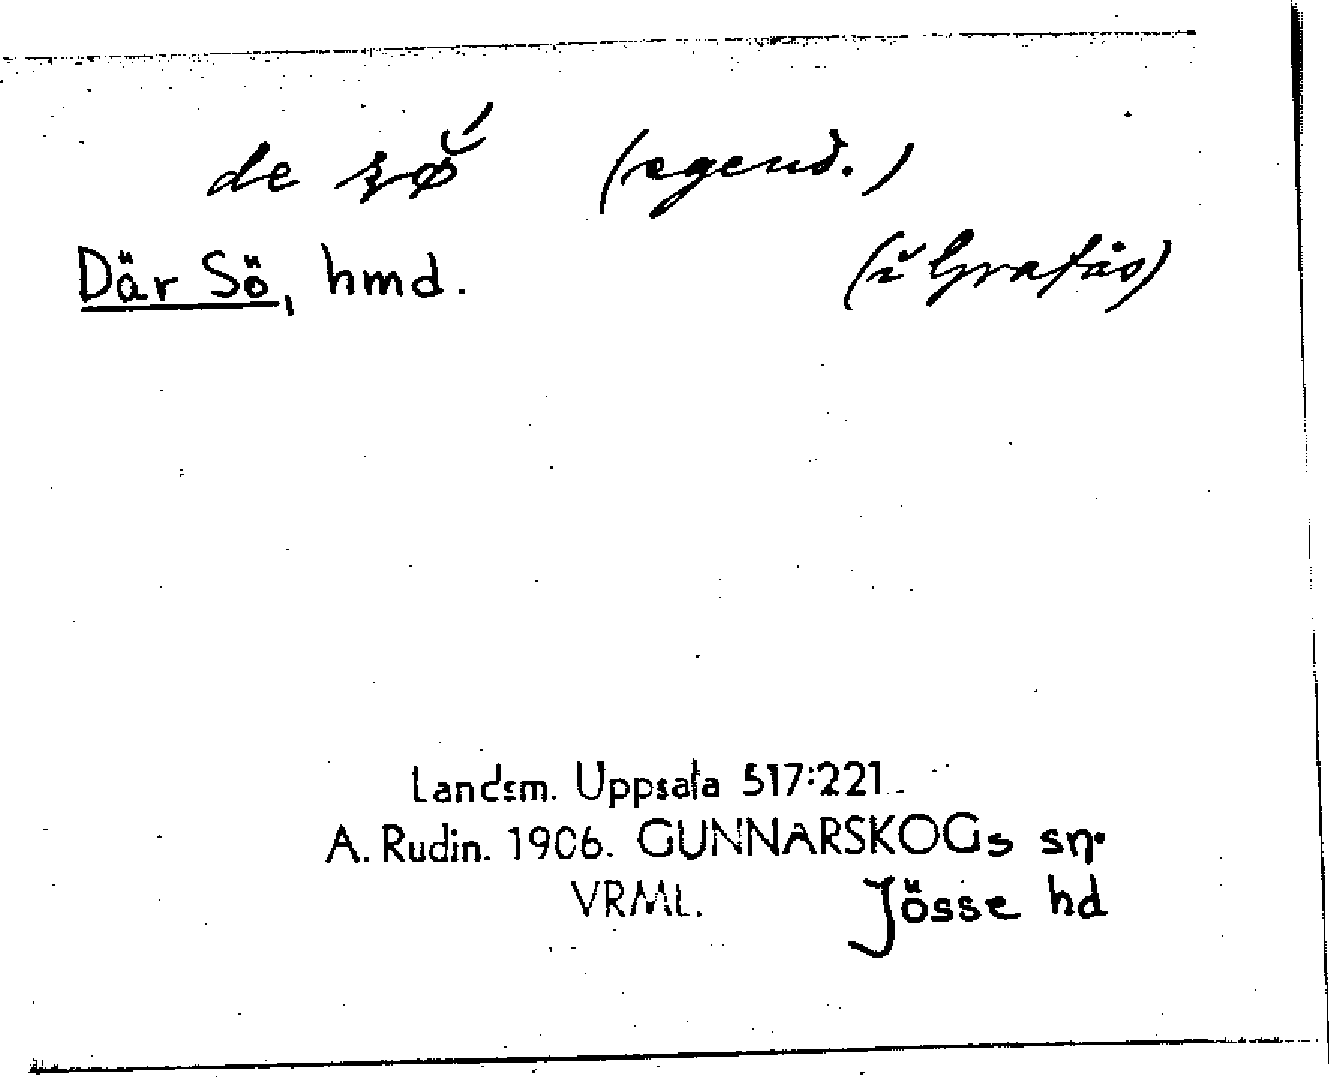 de sø (egend.)
Där Sö, hmd. (i Grafås)
Landsm. Uppsala 517:221.
A. Rudin. 1906. GUNNARSKOGs sn.
VRML. Jösse hd